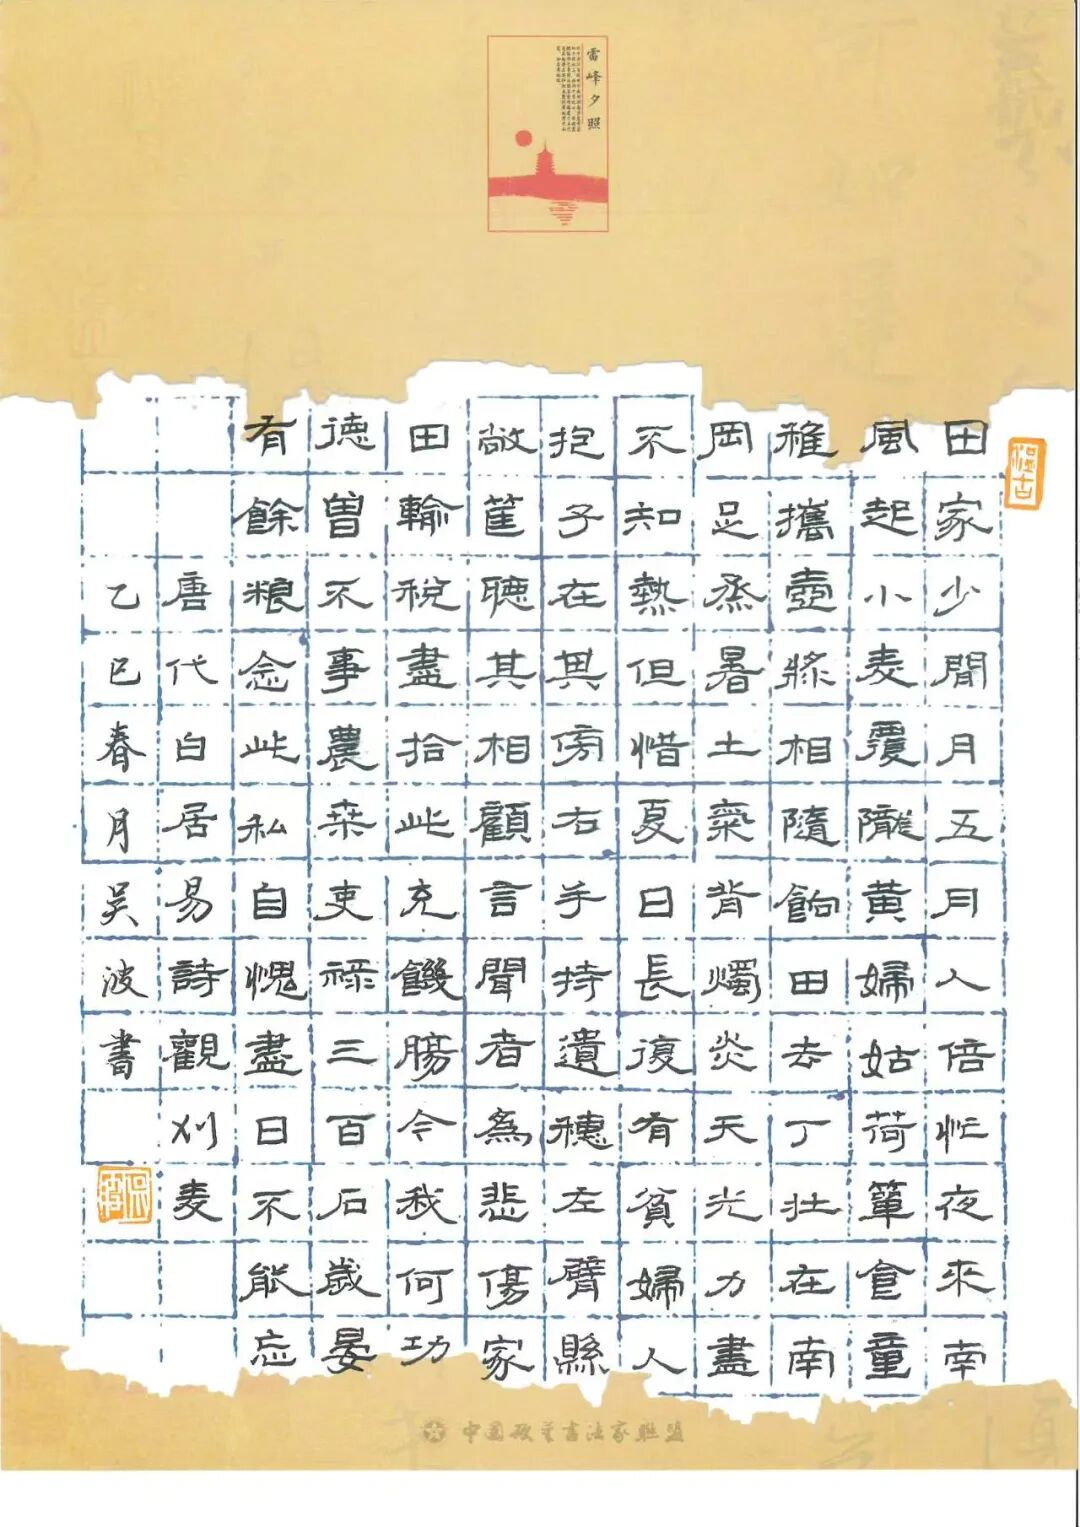 雷峰夕照
田家少閒月五月人倍忙夜來南
風起小麦覆隴黄婦姑荷簞食童
稚攜壺漿相隨餉田去丁壯在南
岡足烝暑土氣背燭炎天光力盡
不知熱但惜夏日長復有貧婦人
抱子在其傍右手持遺穗左臂縣
敝筐聽其相顧言聞者為悲傷家
田輸稅盡拾此充饑腸今我何功
德曾不事農桒吏禄三百石歲晏
有餘粮念此私自愧盡日不能忘
唐代白居易詩觀刈麦
乙巳春月吳波書
中国硬笔书法家联盟